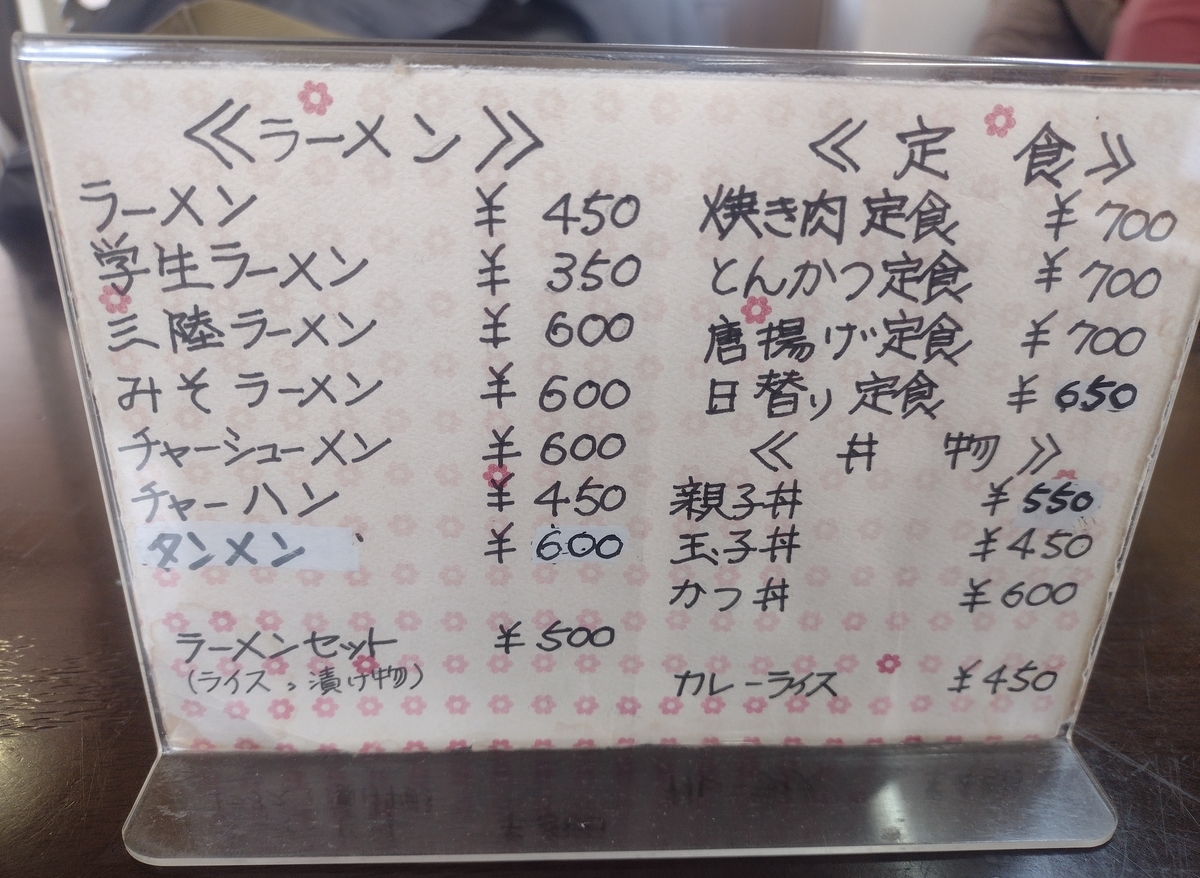 ≪ラーメン≫
ラーメン ¥450
学生ラーメン ¥350
三陸ラーメン ¥600
みそラーメン ¥600
チャーシューメン ¥600
チャーハン ¥450
タンメン ¥600
ラーメンセット ¥500
(ライス、漬け物)
≪定 食≫
焼き肉定食 ¥700
とんかつ定食 ¥700
唐揚げ定食 ¥700
日替り定食 ¥650
≪丼 物≫
親子丼 ¥550
玉子丼 ¥450
かつ丼 ¥600
カレーライス ¥450